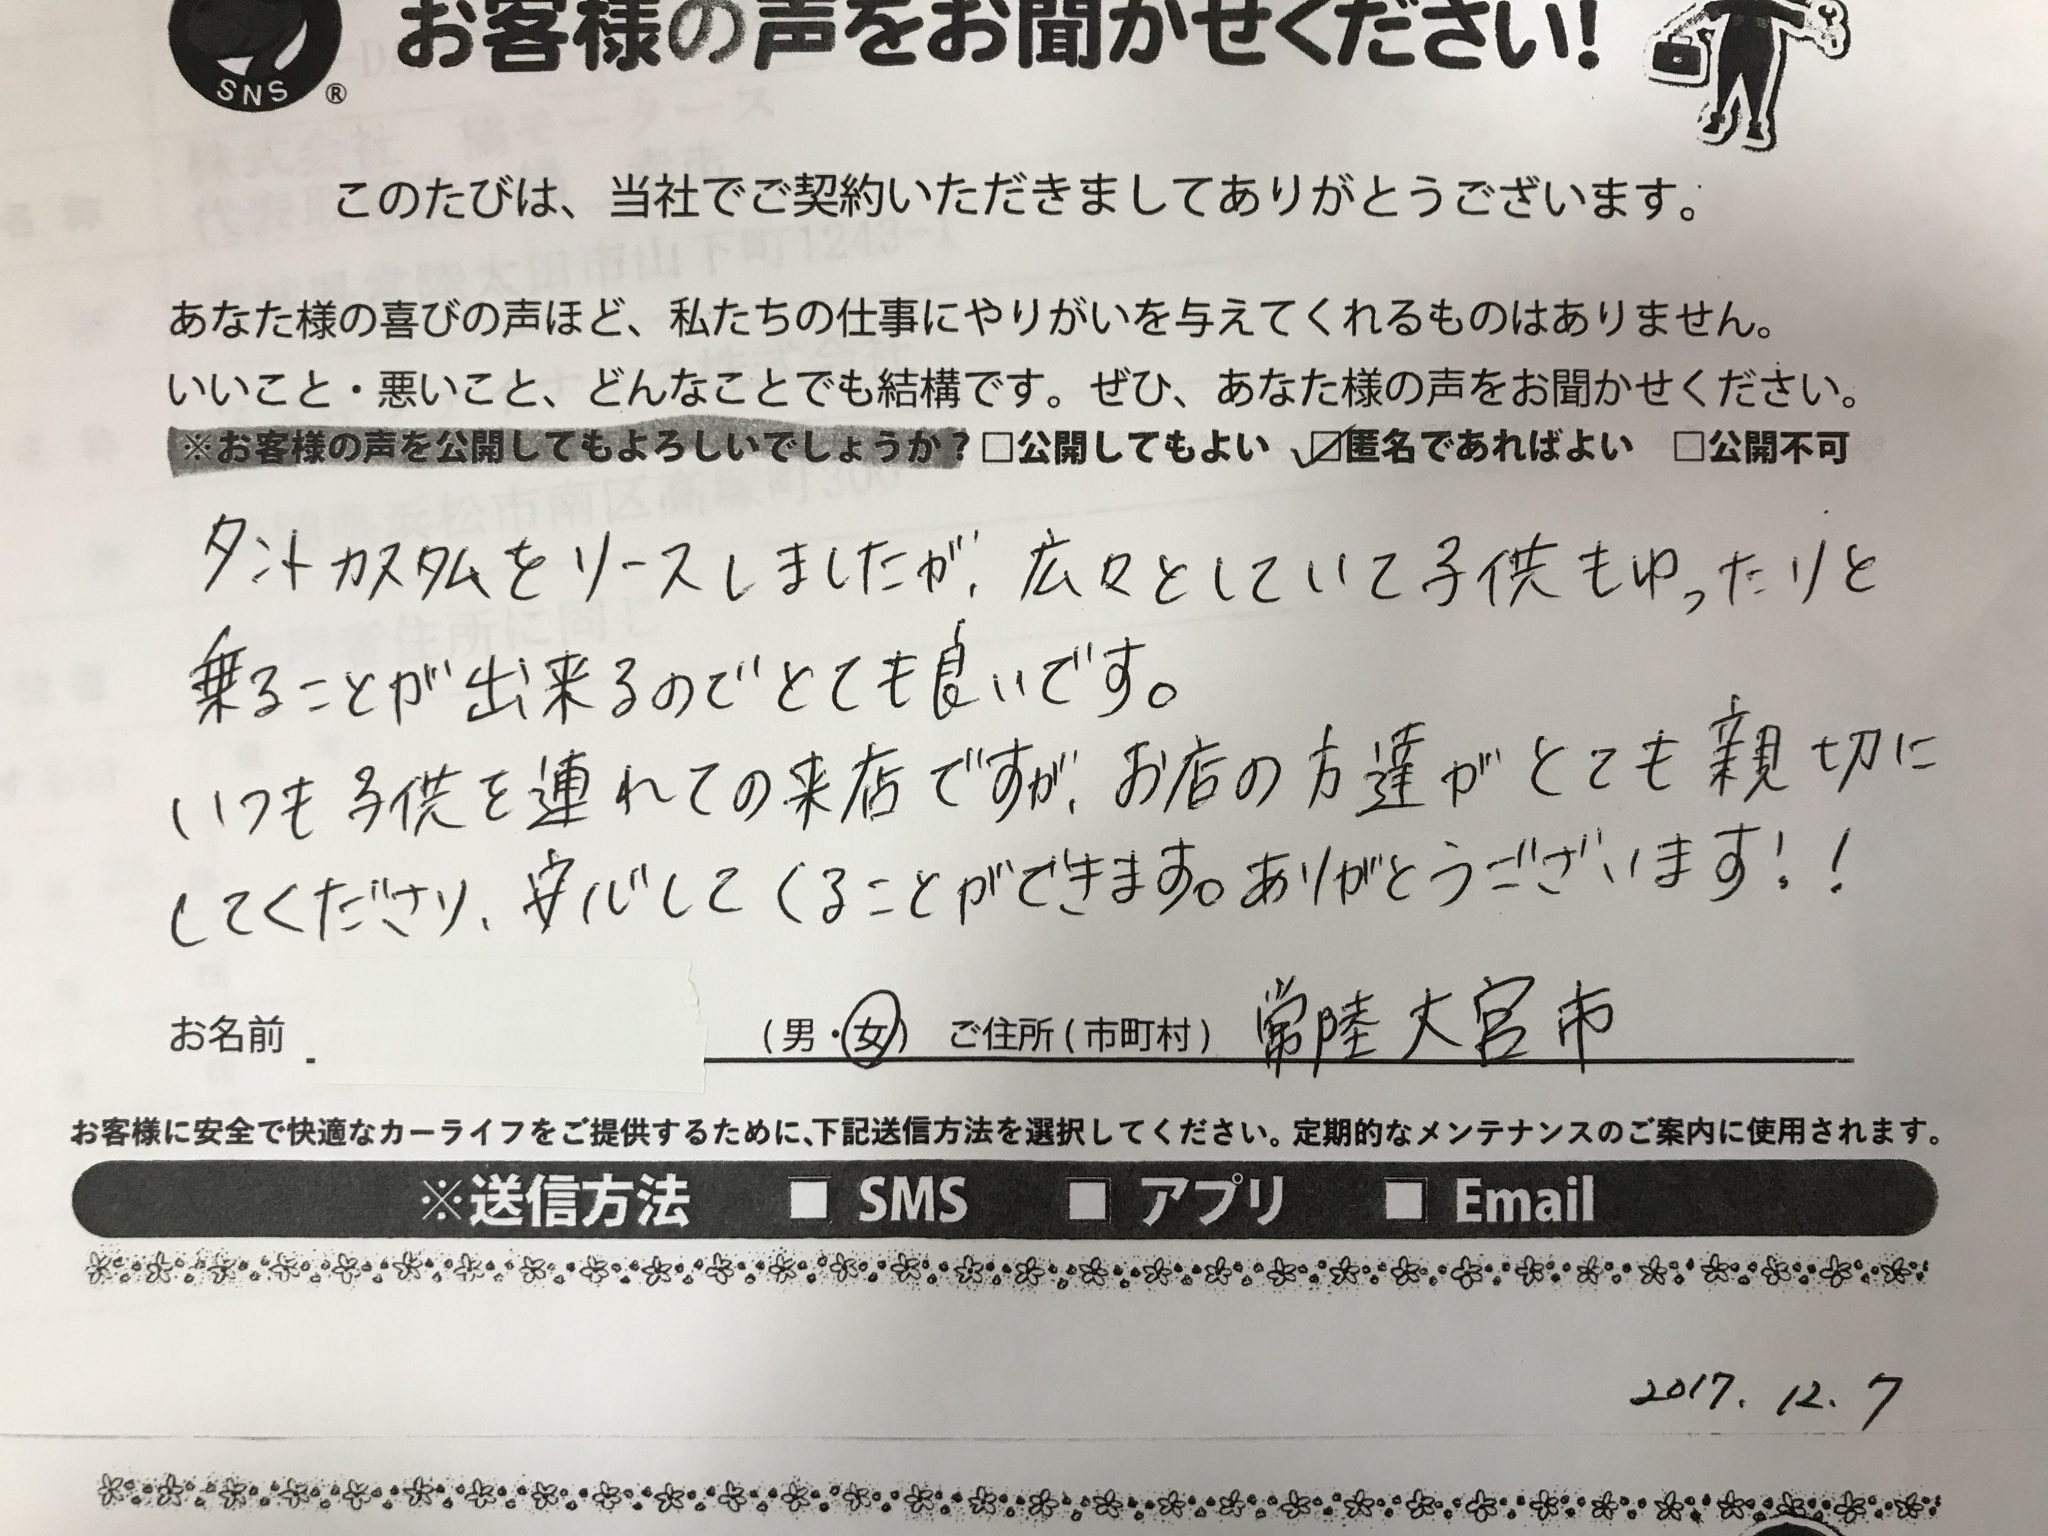 お客様の声をお聞かせください!
SNS ®
このたびは、当社でご契約いただきましてありがとうございます。
あなた様の喜びの声ほど、私たちの仕事にやりがいを与えてくれるものはありません。
いいこと・悪いこと、どんなことでも結構です。ぜひ、あなた様の声をお聞かせください。
※お客様の声を公開してもよろしいでしょうか? □公開してもよい ☑匿名であればよい □公開不可
タントカスタムをリースしましたが、広々としていて子供もゆったりと
乗ることが出来るのでとても良いです。
いつも子供を連れての来店ですが、お店の方達がとても親切に
してくださり、安心してくることができます。ありがとうございます!!
お名前 (男・女) ご住所(市町村) 常陸大宮市
お客様に安全で快適なカーライフをご提供するために、下記送信方法を選択してください。定期的なメンテナンスのご案内に使用されます。
※送信方法 ■ SMS ■ アプリ ■ Email
2017.12.7